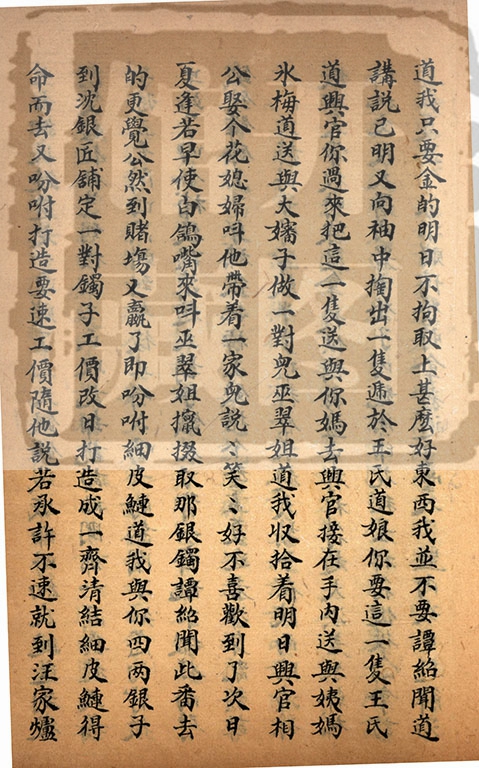 道我只要金的明日不拘取上甚麽好東西我並不要譚紹聞道
講説已明又向袖中掏出一隻遞於王氏道娘你要這一隻王氏
道興官你過來把這一隻送與你媽去興官接在手内送與姨媽
氷梅道送與大嬸子做一對兒巫翠姐道我収拾着明日興官相
公娶个花媳婦呌他帶着一家兒説〻笑〻好不喜歡到了次日
夏逢若早使白鴿嘴來呌巫翠姐攛掇取那銀鐲譚紹聞此番去
的更覺公然到賭塲又贏了即吩咐細皮鰱道我與你四两銀子
到沈銀匠舖定一對鐲子工價改日打造成一齊清結細皮鰱得
命而去又吩咐打造要速工價隨他説若承許不速就到汪家爐